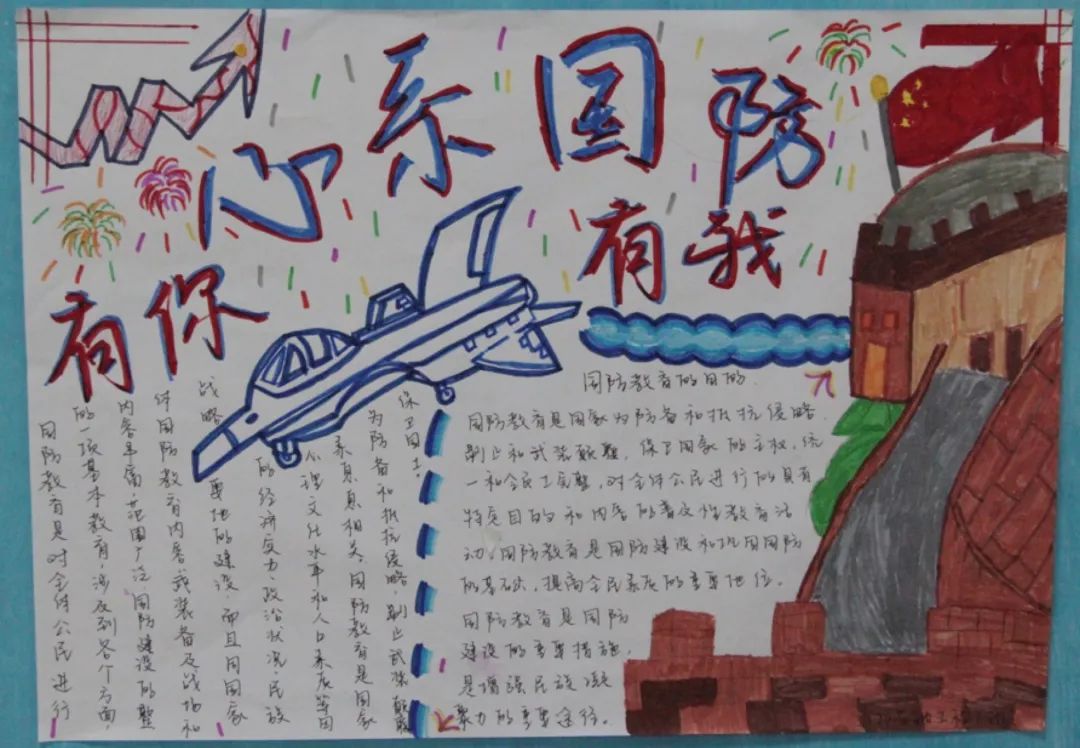 心系国防
有保有我
国防教育是对全体公民进行
的一项基本教育,涉及到各个方面,
内容丰富,范围广泛,国防建设的整
体国防教育内容,武装备及战场和
战略要地的建设,而且同国家
的经济实力、政治状况、民族
心理文化水平和人口素质等因
素息息相关。国防教育是国家
为防备和抵抗侵略,制止武装颠覆
保卫国土.
国防教育的目的.
国防教育是国家为防备和抵抗侵略,
制止和武装颠覆,保卫国家的主权,统
一和全民土完整,对全体公民进行的具有
特定目的和内容的普及性教育活
动,国防教育是国防建设和巩固国防
的基础,提高全民素质的重要地位。
国防教育是国防
建设的重要措施,
是增强民族凝
聚力的重要途径。